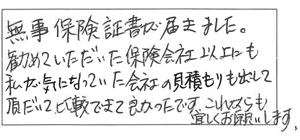 無事保険証書が届きました。
勧めていただいた保険会社以上にも
私が気になっていた会社の見積もりも出して
頂いて比較できて良かったです。これからも
宜しくお願いします,